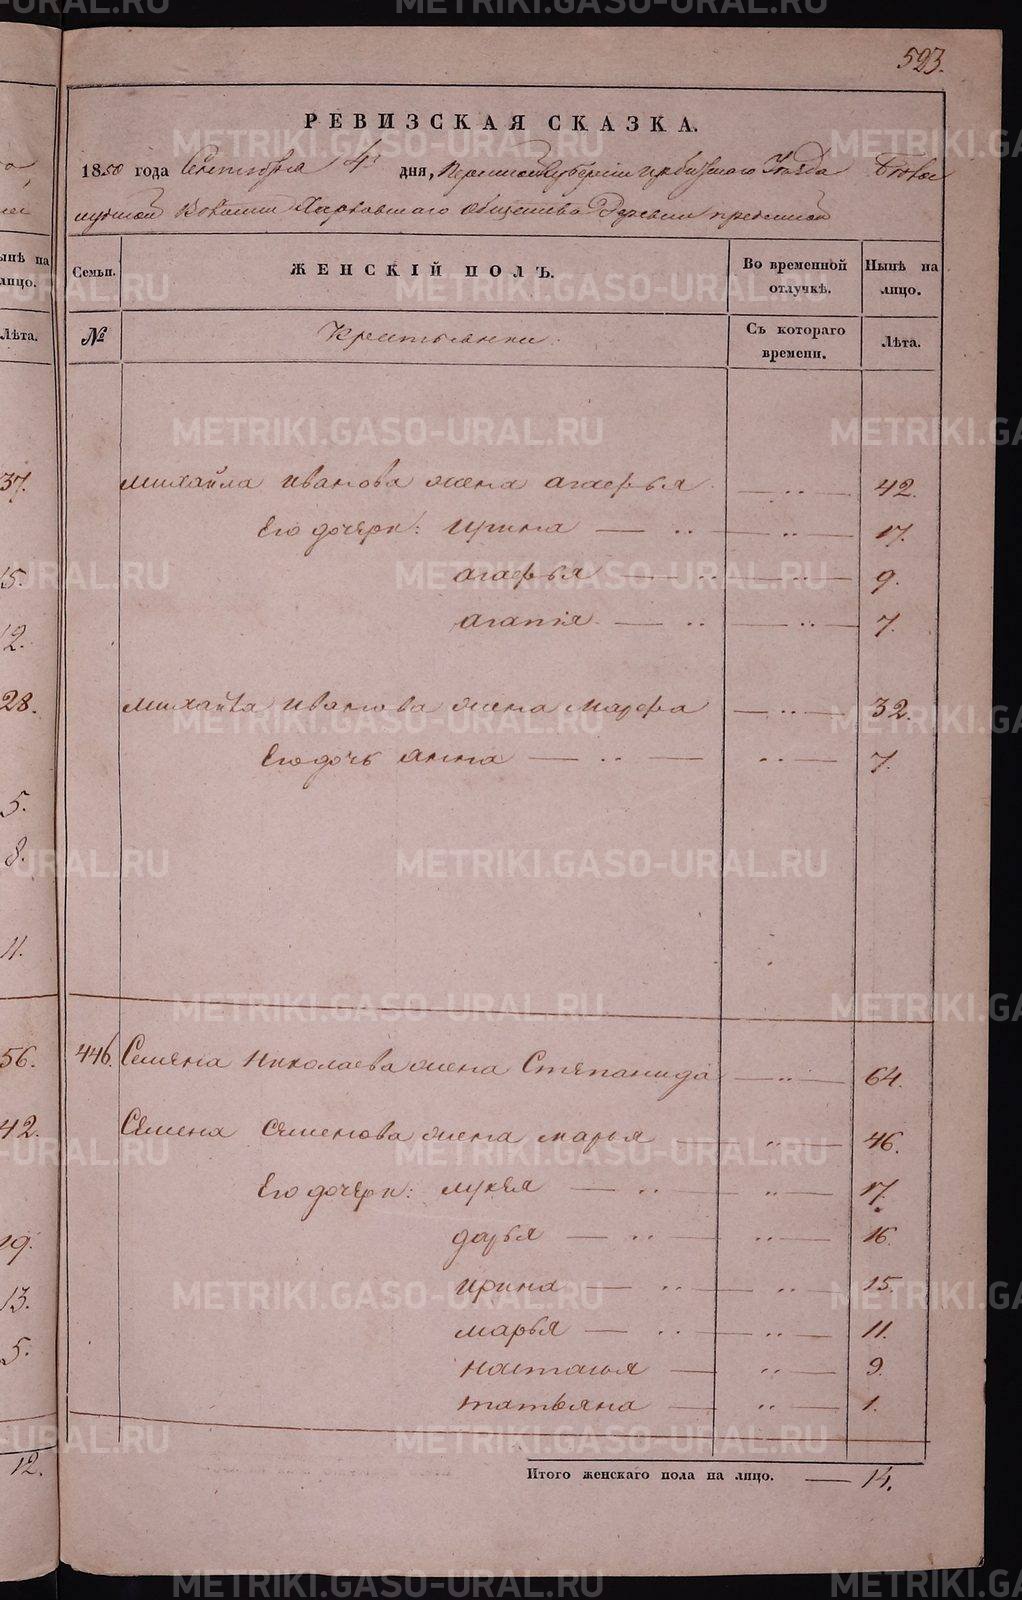 593.
РЕВИЗСКАЯ СКАЗКА.
1850 года Сентября 4 дня, Пермской Губернии Ирбитскаго Уезда
Волости Общества Деревни
Семьи. ЖЕНСКІЙ ПОЛЪ. Во временной отлучкѣ. Нынѣ на лицо.
№ Крестьянки. Съ котораго времени. Лѣта.
Михайла Иванова жена Агафья — „ — 42.
Его дочери: Ирина — „ — „ — 17.
Агафья — „ — „ — 9.
Агапія — „ — „ — 7.
Михайла Иванова жена Марфа — „ — 32.
Его дочь Анна — „ — „ — 7.
446. Семена Николаева жена Степанида — „ — 64.
Семена Семенова жена Марья — „ — 46.
Его дочери: Лукея — „ — „ — 17.
Дарья — „ — „ — 16.
Ирина — „ — „ — 15.
Марья — „ — „ — 11.
Настасья — „ — 9.
Татьяна — „ — 1.
Итого женскаго пола на лицо. — 14.
ынѣ на
лицо.
Лѣта.
37.
15.
12.
28.
5.
8.
11.
56.
42.
19.
13.
5.
12.
METRIKI.GASO-URAL.RU